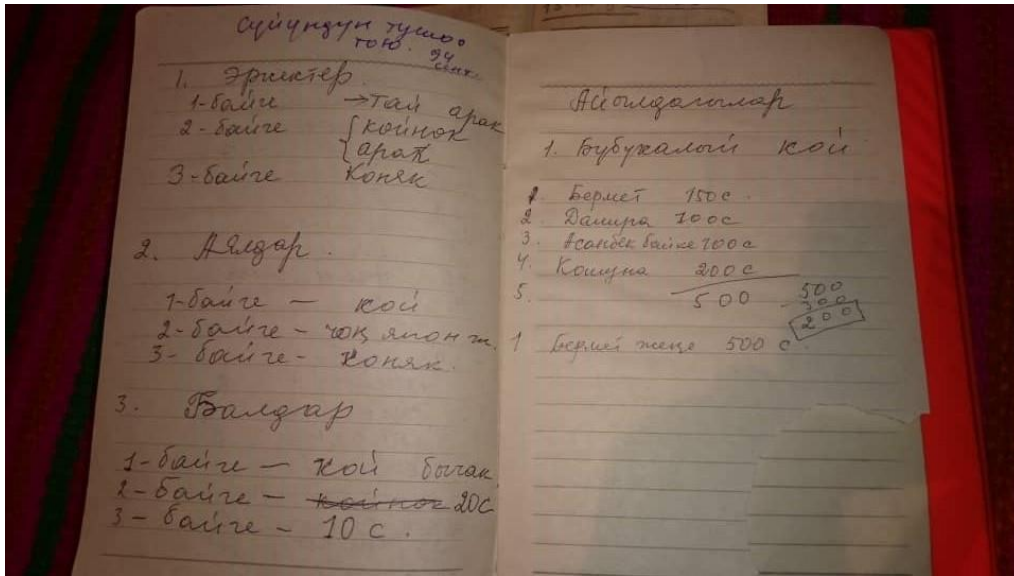 Сүйүндүн тушоо
тою. 94
1. Эркектер
1-байге → тай арак
2-байге { койнок
арак
3-байге Коняк
2. Аялдар.
1-байге — кой
2-байге — чоң япон ж.
3-байге — коняк.
3. Балдар
1-байге — кой бычак
2-байге — койнок 20с
3-байге — 10 с.
Айылдагылар
1. Бубукалый кой
1. Бермет 150с.
2. Дамира 100с
3. Асанбек байке 100с
4. Кошуна 200с
5. 500
500
300
200
1 Бермет жеңе 500 с